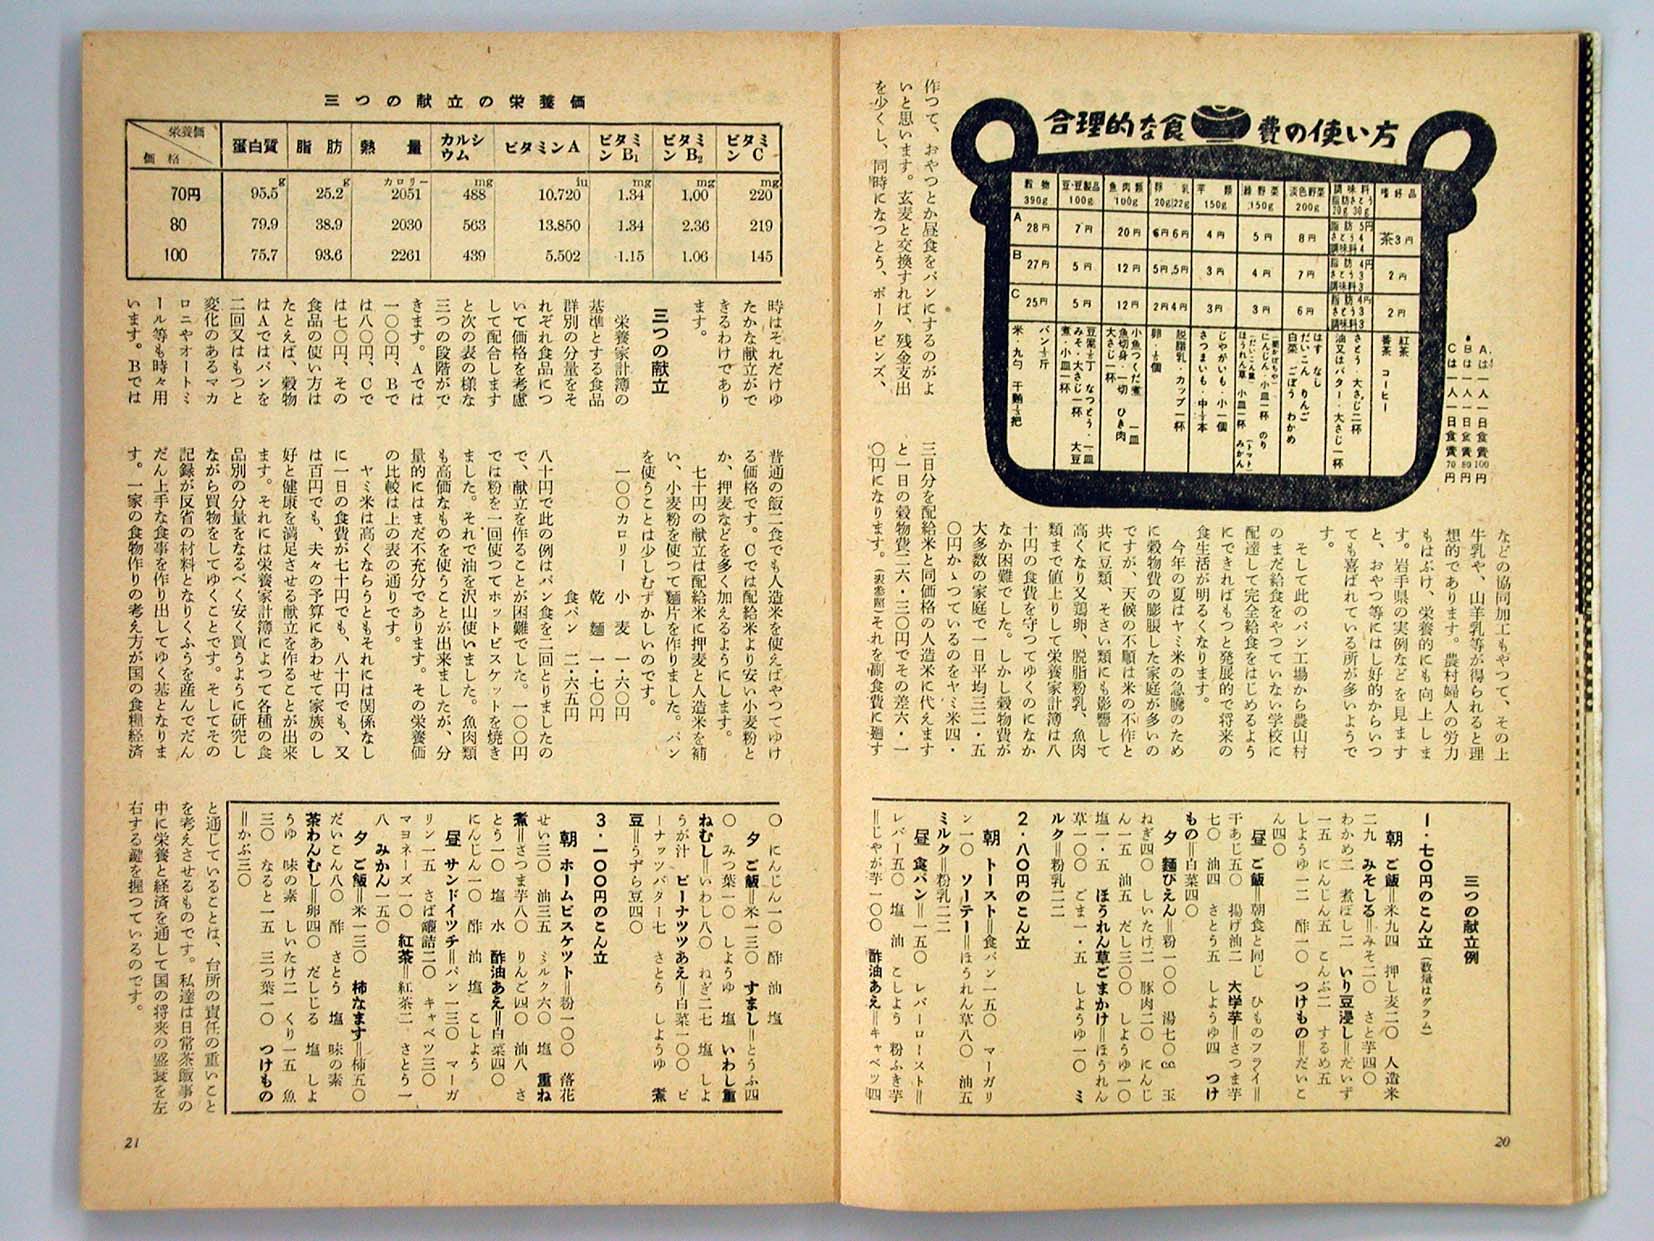 合理的な食費の使い方
穀物 390g 豆・豆製品 100g 魚肉類 100g 卵 乳 20g 22g 芋類 150g 緑野菜 150g 淡色野菜 200g 調味料 脂肪 さとう 20g 30g 嗜好品
A 28円 7円 20円 6円 6円 4円 5円 8円 脂肪 5円 さとう 4 調味料 4 茶3円
B 27円 5円 12円 5円 5円 3円 4円 7円 脂肪 4円 さとう 3 調味料 3 2円
C 25円 5円 12円 2円 4円 3円 3円 6円 脂肪 4円 さとう 3 調味料 3 2円
Aは一人一日食費100円
Bは一人一日食費80円
Cは一人一日食費70円
紅茶
番茶 コーヒー
さとう・大さじ二杯
油又はバター・大さじ一杯
はす なし
だいこん りんご
白菜 ごぼう わかめ
にんじん・小皿一杯 のり
ほうれん草 小皿一杯 みかん
じゃがいも・小一個
さつまいも・中½本
脱脂乳・カップ一杯
卵・½個
小魚つくだ煮 一皿
魚切身・一切 ひき肉
大さじ一杯
豆腐½丁 なつとう・一皿
みそ・大さじ一杯 大豆
煮・小皿一杯
パン½斤
米・九勺 干麺½把
作つて、おやつとか昼食をパンにするのがよ
いと思います。玄麦と交換すれば、残金支出
を少くし、同時になつとう、ポークビンズ、
などの協同加工もやつて、その上
牛乳や、山羊乳等が得られると理
想的であります。農村婦人の労力
もはぶけ、栄養的にも向上しま
す。岩手県の実例などを見ます
と、おやつ等にはし好的からいつ
ても喜ばれている所が多いようで
す。
そして此のパン工場から農山村
のまだ給食をやつていない学校に
配達して完全給食をはじめるよう
にできればもつと発展的で将来の
食生活が明るくなります。
今年の夏はヤミ米の急騰のため
に穀物費の膨脹した家庭が多いの
ですが、天候の不順は米の不作と
共に豆類、そさい類にも影響して
高くなり又鶏卵、脱脂粉乳、魚肉
類まで値上りして栄養家計簿は八
十円の食費を守つてゆくのになか
なか困難でした。しかし穀物費が
大多数の家庭で一日平均三二・五
〇円かゝつているのをヤミ米四・
三日分を配給米と同価格の人造米に代えます
と一日の穀物費二六・三〇円でその差六・一
〇円になります。(表参照)それを副食費に廻す
三つの献立例
1・七〇円のこん立(数量はグラム)
朝 ご飯=米九四 押し麦二〇 人造米
二九 みそしる=みそ二〇 さと芋四〇
わかめ二 煮ぼし二 いり豆浸し=だいず
一五 にんじん五 こんぶ二 するめ五
しようゆ一二 酢一〇 つけもの=だいこ
ん四〇
昼 ご飯=朝食と同じ ひものフライ=
干あじ五〇 揚げ油二 大学芋=さつま芋
七〇 油四 さとう五 しようゆ四 つけ
もの=白菜四〇
夕 麺びえん=粉一〇〇 湯七〇cc 玉
ねぎ四〇 しいたけ二 豚肉二〇 にんじ
ん一五 油五 だし三〇〇 しようゆ一〇
塩一・五 ほうれん草ごまかけ=ほうれん
草一〇〇 ごま一・五 しようゆ一〇 ミ
ルク=粉乳二二
2・八〇円のこん立
朝 トースト=食パン一五〇 マーガリ
ン一〇 ソーテー=ほうれん草八〇 油五
ミルク=粉乳二二
昼 食パン=一五〇 レバーロースト=
レバー五〇 塩 油 こしよう 粉ふき芋
=じやが芋一〇〇 酢油あえ=キャベツ四
20
三つの献立の栄養価
栄養価 価格 蛋白質 脂肪 熱量 カルシウム ビタミンA ビタミンB₁ ビタミンB₂ ビタミンC
70円 95.5g 25.2g 2051カロリー 488mg 10.720iu 1.34mg 1.00mg 220mg
80 79.9 38.9 2030 563 13.850 1.34 2.36 219
100 75.7 93.6 2261 439 5.502 1.15 1.06 145
時はそれだけゆ
たかな献立がで
きるわけであり
ます。
三つの献立
栄養家計簿の
基準とする食品
群別の分量をそ
れぞれ食品につ
いて価格を考慮
して配合します
と次の表の様な
三つの段階がで
きます。Aでは
一〇〇円、Bで
は八〇円、Cで
は七〇円、その
食品の使い方は
たとえば、穀物
はAではパンを
二回又はもつと
変化のあるマカ
ロニやオートミ
ール等も時々用
います。Bでは
普通の飯二食でも人造米を使えばやつてゆけ
る価格です。Cでは配給米より安い小麦粉と
か、押麦などを多く加えるようにします。
七十円の献立は配給米に押麦と人造米を補
い、小麦粉を使つて麺片を作りました。パン
を使うことは少しむずかしいのです。
一〇〇カロリー 小麦 一・六〇円
乾麺 一・七〇円
食パン 二・六五円
八十円で此の例はパン食を二回とりましたの
で、献立を作ることが困難でした。一〇〇円
では粉を一回使つてホットビスケットを焼き
ました。それで油を沢山使いました。魚肉類
も高価なものを使うことが出来ましたが、分
量的にはまだ不充分であります。その栄養価
の比較は上の表の通りです。
ヤミ米は高くならうともそれには関係なし
に一日の食費が七十円でも、八十円でも、又
は百円でも、夫々の予算にあわせて家族のし
好と健康を満足させる献立を作ることが出来
ます。それには栄養家計簿によつて各種の食
品別の分量をなるべく安く買うように研究し
ながら買物をしてゆくことです。そしてその
記録が反省の材料となりくふうを産んでだん
だん上手な食事を作り出してゆく基となりま
す。一家の食物作りの考え方が国の食糧経済
〇 にんじん一〇 酢 油 塩
夕 ご飯=米一三〇 すまし=とうふ四
〇 みつ葉一〇 しようゆ 塩 いわし重
ねむし=いわし八〇 ねぎ二七 塩 しよ
うが汁 ピーナツツあえ=白菜一〇〇 ピ
ーナッツバター七 さとう しようゆ 煮
豆=うずら豆四〇
3・一〇〇円のこん立
朝 ホームビスケット=粉一〇〇 落花
せい三〇 油三五 ミルク六〇 塩 重ね
煮=さつま芋八〇 りんご四〇 油八 さ
とう一〇 塩 水 酢油あえ=白菜四〇
にんじん一〇 酢 油 塩 こしよう
昼 サンドイツチ=パン一三〇 マーガ
リン一五 さば罐詰二〇 キャベツ三〇
マヨネーズ一〇 紅茶=紅茶二 さとう一
八 みかん一五〇
夕 ご飯=米一三〇 柿なます=柿五〇
だいこん八〇 酢 さとう 塩 味の素
茶わんむし=卵四〇 だしじる 塩 しよ
うゆ 味の素 しいたけ二 くり一五 魚
三〇 なると一五 三つ葉一〇 つけもの
=かぶ三〇
と通じていることは、台所の責任の重いこと
を考えさせるものです。私達は日常茶飯事の
中に栄養と経済を通して国の将来の盛衰を左
右する鍵を握つているのです。
21